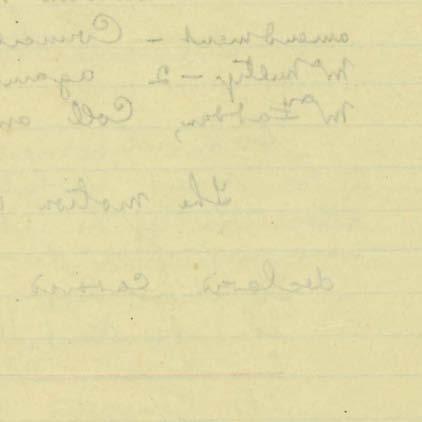 amendment - Council
McNulty - 2 again
McFadden, Coll an
The motion
declared carried